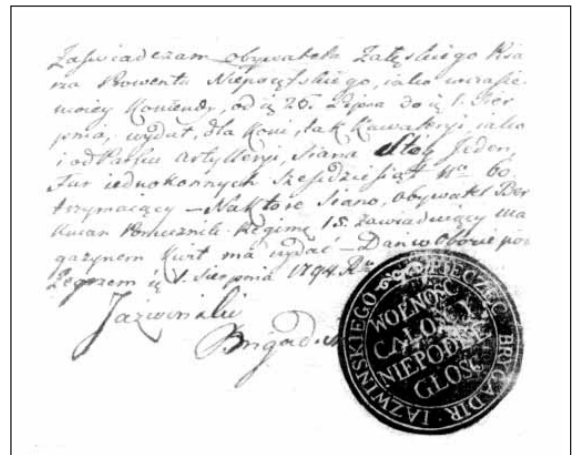 Zaświadczam obywatela Załęskiego Xią
na Prowentu Nieporętskiego, iako w czasie
moiey Komendy, od 25. Lipca do 1. Sier
pnia, wydał, dla Koni, tak Kawaleryi, iako
i od Parku Artylleryi, Siana Stóg Jeden,
Fur iednokonnych Sześćdziesiąt Nro 60.
trzymaiący — Na które Siano, obywatel
Pomucznik Regime 15. zawiaduiący Ma
gazynem Kwit ma wydać — Dan w Obozie pod
Zegrzem 1. Sierpnia 1794. R
Jaźwiński
Brigad
PIECZĘĆ BRIGADIR: IAZWINSKIEGO
WOLNOSC
CAŁOSC
NIEPODLE
GŁOSC